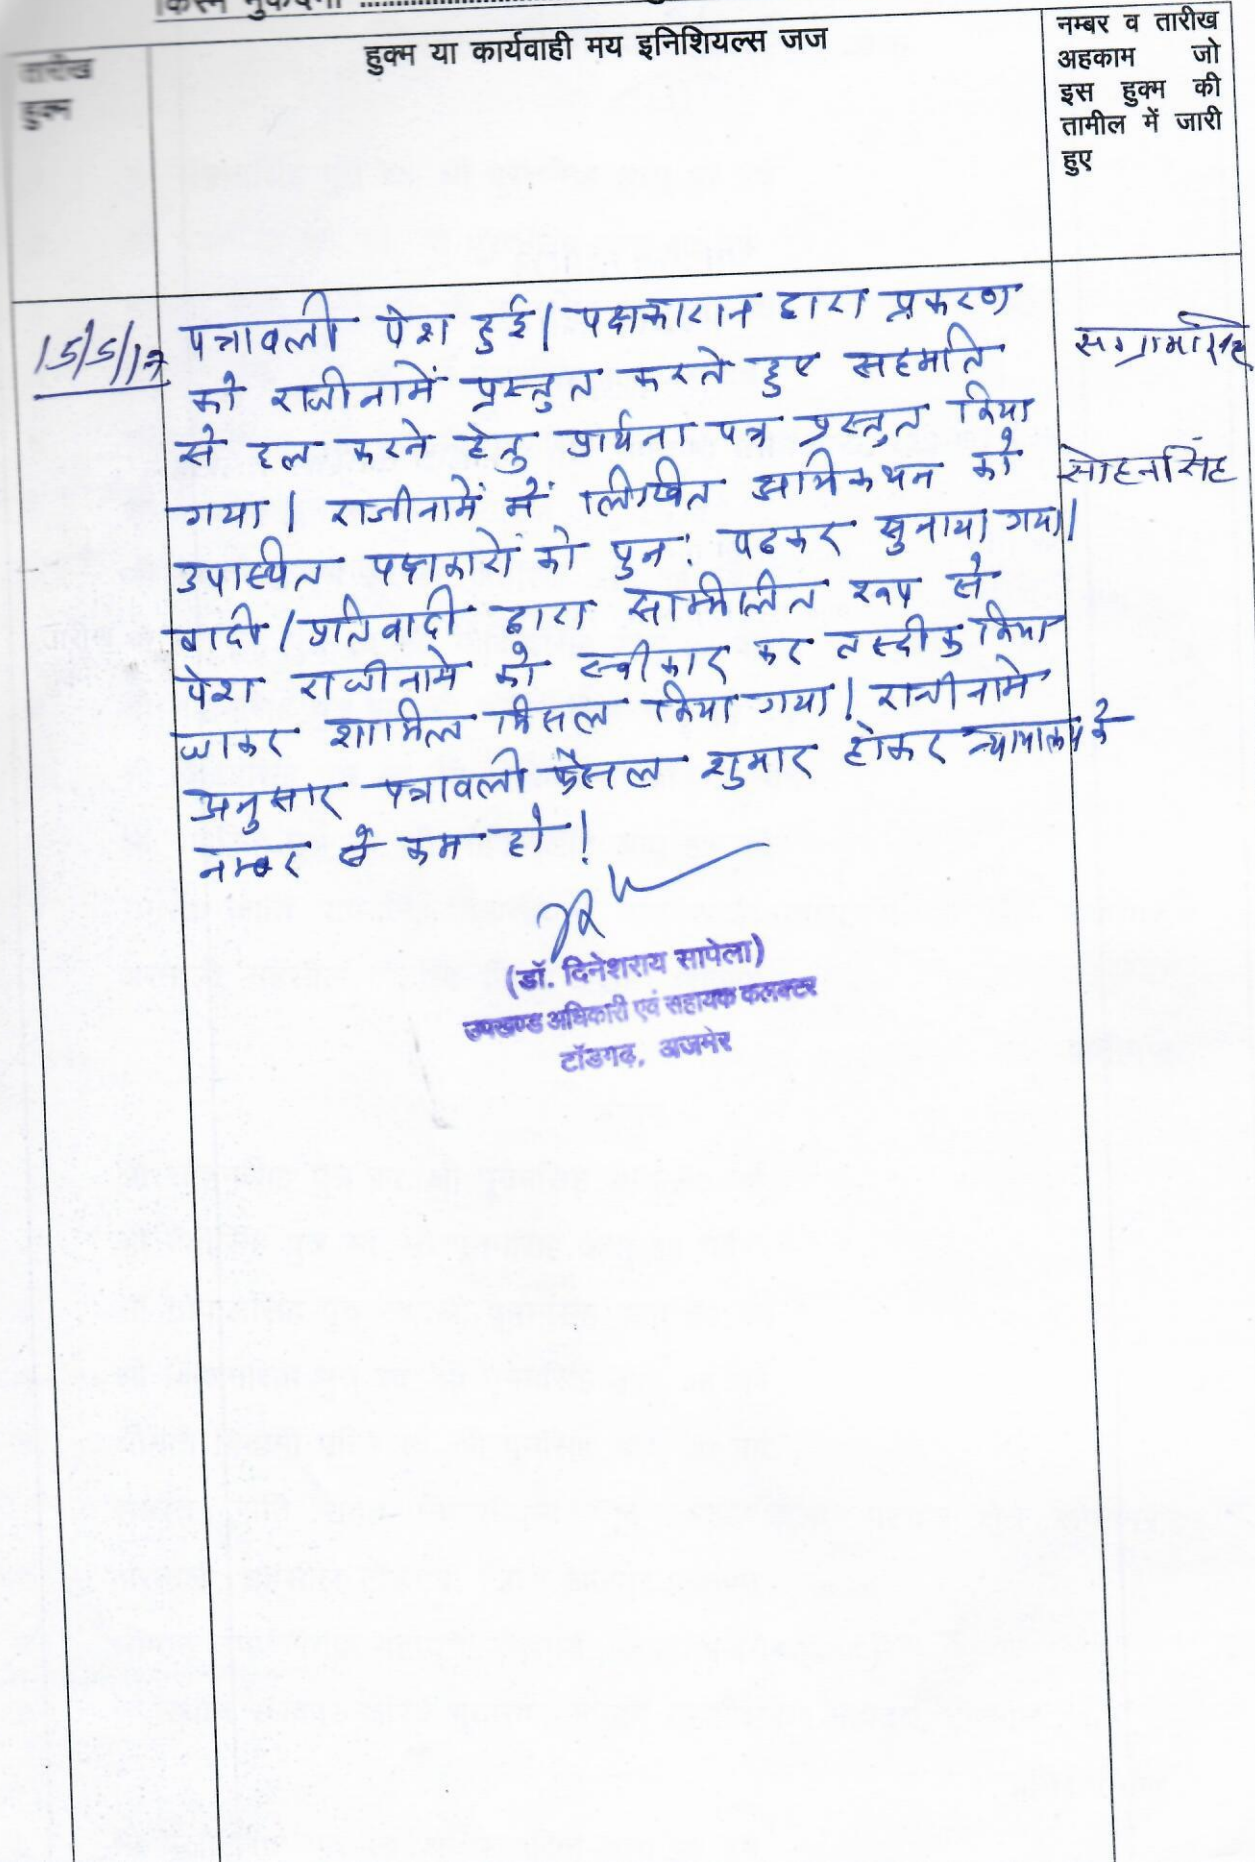 किस्म मुकदमा
तारीख
हुक्म
हुक्म या कार्यवाही मय इनिशियल्स जज
नम्बर व तारीख
अहकाम जो
इस हुक्म की
तामील में जारी
हुए
15/5/17
पत्रावली पेश हुई। पक्षकारान द्वारा प्रकरण
को राजीनामें प्रस्तुत करते हुए सहमति
से हल करने हेतु प्रार्थना पत्र प्रस्तुत किया
गया। राजीनामें में लिखित अभिकथन को
उपस्थित पक्षकारों को पुन: पढकर सुनाया गया।
वादी/प्रतिवादी द्वारा सम्मिलित रूप से
पेश राजीनामे को स्वीकार कर तस्दीक किया
जाकर शामिल मिसल किया गया। राजीनामे
अनुसार पत्रावली फैसल शुमार होकर न्यायालय के
नम्बर से कम हो।
संग्रामसिंह
सोहनसिंह
(डॉ. दिनेशराय सापेला)
उपखण्ड अधिकारी एवं सहायक कलक्टर
टॉडगढ़, अजमेर